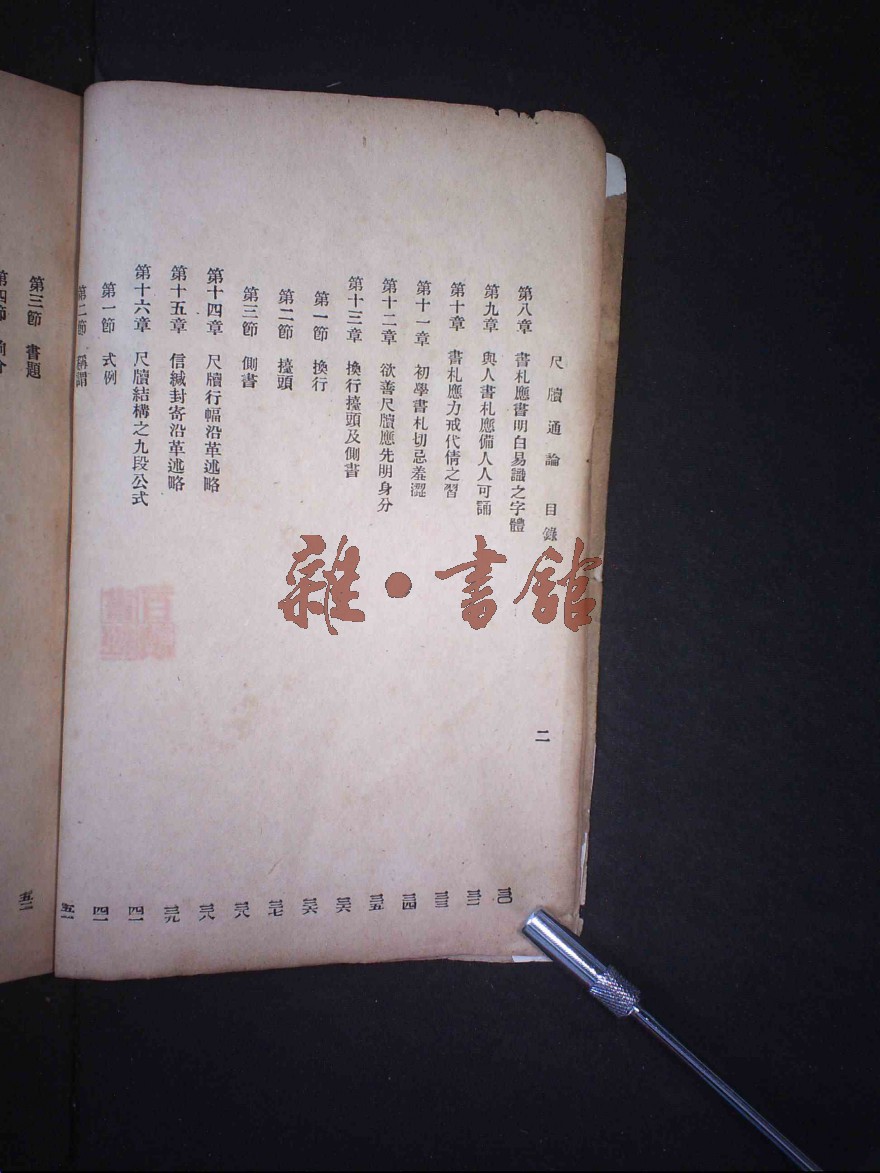 尺牘通論 目錄 二
第八章 書札應書明白易識之字體 三〇
第九章 與人書札應備人人可誦 三二
第十章 書札應力戒代倩之習 三三
第十一章 初學書札切忌羞澀 三四
第十二章 欲善尺牘應先明身分 三五
第十三章 換行擡頭及側書 三六
第一節 換行 三六
第二節 擡頭 三七
第三節 側書 三八
第十四章 尺牘行幅沿革述略 三八
第十五章 信緘封寄沿革述略 三九
第十六章 尺牘結構之九段公式 四一
第一節 式例 四一
第二節 稱謂 五一
第三節 書題
第四節
雜·書館